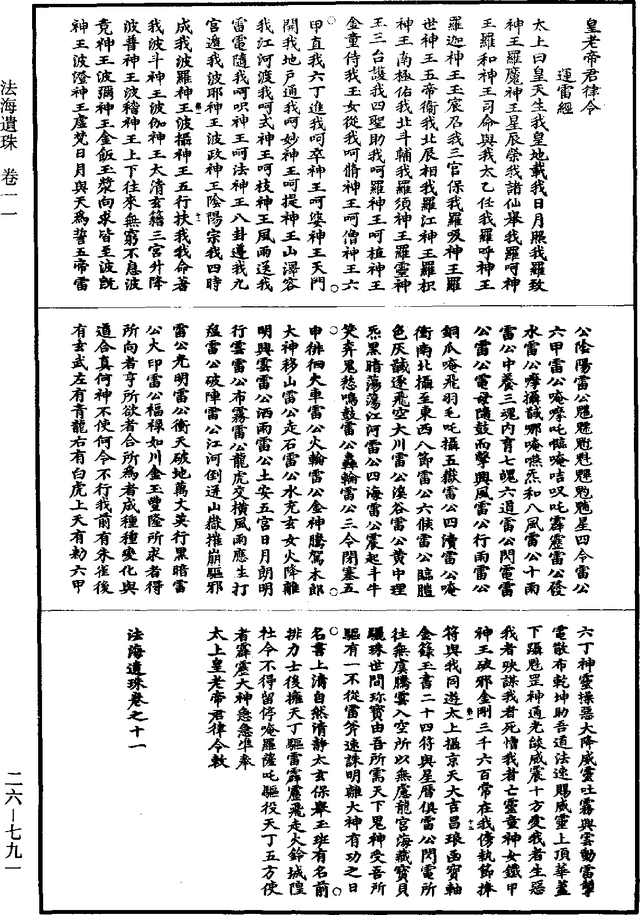 法海遺珠　卷一一
二六—七九一
皇老帝君律令
運雷經
太上曰皇天生我皇地載我日月照我羅致
神王羅魔神王星辰榮我諸仙舉我羅呵神
王羅和神王司命與我太乙任我羅呼神王
羅迦神王玉宸召我三官保我羅吸神王羅
世神王五帝衛我北辰相我羅江神王羅枳
神王南極佑我北斗輔我羅須神王羅靈神
王三台護我四聖助我呵羅神王呵植神王
金童侍我玉女從我呵脩神王呵僧神王六
甲直我六丁進我呵卒神王呵婆神王天門
開我地戶通我呵妙神王呵提神王山澤容
我江河渡我呵式神王呵枝神王風雨送我
雷電隨我呵呎神王呵法神王八卦遵我九
宮遁我波耶神王波政神王陰陽宗我四時
成我波羅神王波攝神王五行扶我我命著
我波斗神王波伽神王太清玄籍三宮升降
波普神王波稽神王上下往來無窮不息波
竟神王波彌神王金飯玉漿向求皆至波既
神王波澄神王虛梵日月與天為誓五帝雷
公陰陽雷公魁𩲃𩳐魁魓𩲃魒星四令雷公
六甲雷公唵摩吒臨唵吉叹吒霹靂雷公發
水雷公摩攝諴哪唵嚥炁和八風雷公十雨
雷公中養三魂内育七魄六道雷公閃電雷
公雷公電母隨鼓而擊興風雷公行雨雷公
銅爪唵飛羽毛吒攝五嶽雷公四瀆雷公唵
衝南北攝至東西八節雷公六候雷公臨膻
色灰諴逐飛空大川雷公溪谷雷公黃中理
炁黑暗蕩蕩江河雷公四海雷公震起斗牛
笑奔鬼愁鳴鼓雷公轟輪雷公三令閉塞五
申徘徊大車雷公火輪雷公金神騰駕木郎
大神移山雷公走石雷公水充玄女火降離
明興雲雷公洒雨雷公土安五宮日月朗明
行雲雷公布霧雷公龍虎交橫風雨應生打
瘟雷公破陣雷公江河倒逆山嶽摧崩驅邪
雷公光明雷公衝天破地萬大莫行黑暗雷
公大印雷公福祿如川金玉豐隆所求者得
所向者亨所欲者合所為者成種種變化與
道合真何神不使何令不行我前有朱雀後
有玄武左有青龍右有白虎上天有勑六甲
六丁神靈操惡大降威靈吐霧興雲動雷擊
電散布乾坤助吾道法速賜威靈上頂華蓋
下躡魁罡神通光燄威震十方愛我者生惡
我者殃謀我者死憎我者亡靈童神女鐵甲
神王破邪金剛三千六百常在我傍執節捧
符與我同遊太上攝京天大吉昌琅函寶軸
金籙玉書二十四符與星曆俱雷公閃電所
往無虞騰雲入空所以無慮龍宮海藏寶貝
驪珠世間珎寶由吾所需天下鬼神受吾所
驅有一不從雷斧速誅明離大神有功之日
名書上清自然清静太玄保舉玉班有名前
排力士後擁天丁驅雷霹靂飛走火鈴城隍
社令不得留停唵羅薩吒驅役天丁五方使
者霹靂大神急急準奉
太上皇老帝君律令敕
法海遺珠卷之十一